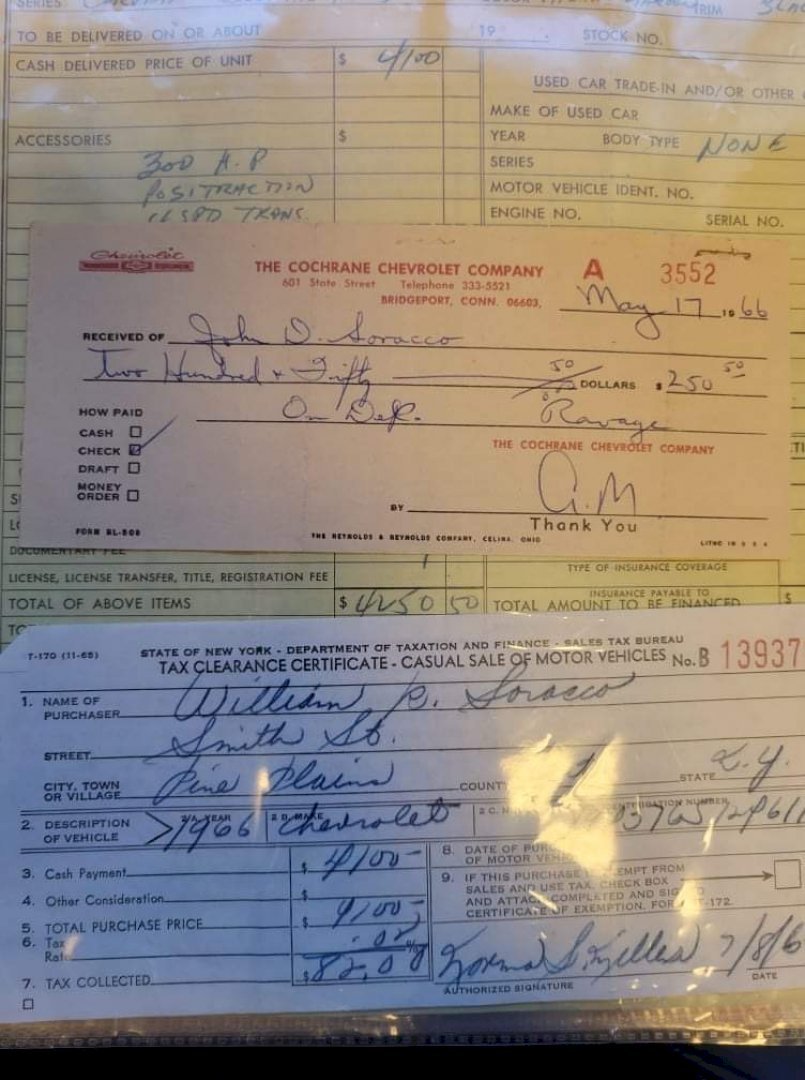 SERIES
TRIM
TO BE DELIVERED ON OR ABOUT 19 STOCK NO.
CASH DELIVERED PRICE OF UNIT $ 4100
USED CAR TRADE-IN AND/OR OTHER
MAKE OF USED CAR
ACCESSORIES $
YEAR BODY TYPE NONE
300 H.P
SERIES
POSITRACTION
MOTOR VEHICLE IDENT. NO.
SPD TRANS.
ENGINE NO. SERIAL NO.
Chevrolet
THE COCHRANE CHEVROLET COMPANY A 3552
601 State Street Telephone 333-5521
BRIDGEPORT, CONN. 06603, May 17 1966
RECEIVED OF John D. Soracco
Two Hundred + Fifty 50 DOLLARS $ 250 50
HOW PAID On Dep. Ravage
CASH
CHECK
THE COCHRANE CHEVROLET COMPANY
DRAFT
MONEY ORDER
BY G.M
Thank You
FORM RL-508 THE REYNOLDS & REYNOLDS COMPANY, CELINA, OHIO LITHO IN U S A
DOCUMENTARY FEE
TYPE OF INSURANCE COVERAGE
LICENSE, LICENSE TRANSFER, TITLE, REGISTRATION FEE
INSURANCE PAYABLE TO
TOTAL OF ABOVE ITEMS $ 4250 50 TOTAL AMOUNT TO BE FINANCED $
T-170 (11-65) STATE OF NEW YORK - DEPARTMENT OF TAXATION AND FINANCE - SALES TAX BUREAU
TAX CLEARANCE CERTIFICATE - CASUAL SALE OF MOTOR VEHICLES No. B 13937
1. NAME OF PURCHASER William P. Soracco
STREET Smith St.
CITY, TOWN OR VILLAGE Pine Plains COUNTY STATE N.Y.
2. DESCRIPTION OF VEHICLE 2 A. YEAR 1966 2 B. MAKE Chevrolet
3. Cash Payment $ 4100-
8. DATE OF PURCHASE OF MOTOR VEHICLE
4. Other Consideration $
9. IF THIS PURCHASE EXEMPT FROM
SALES AND USE TAX, CHECK BOX
AND ATTACH COMPLETED AND SIGNED
CERTIFICATE OF EXEMPTION, FORM ST-172
5. TOTAL PURCHASE PRICE $ 4100-
6. Tax Rate .02 %
7. TAX COLLECTED $ 82.00
7/8/6
AUTHORIZED SIGNATURE DATE